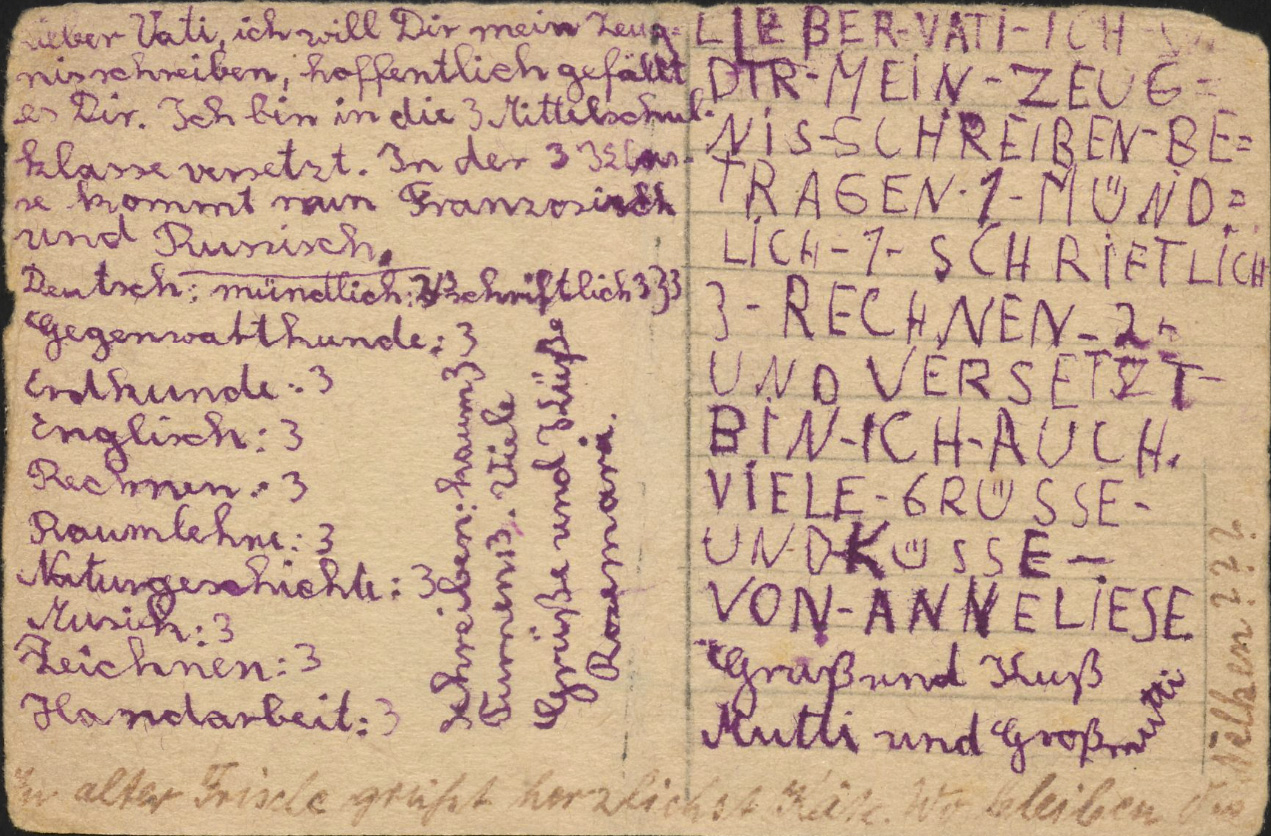 Lieber Vati, ich will Dir mein Zeug-
nis schreiben, hoffentlich gefällt
es Dir. Ich bin in die 3 Mittelschul-
klasse versetzt. In der 3 Klas-
se kommt nun Französisch
und Russisch.
Deutsch: mündlich: 3 schriftlich 3
Gegenwartkunde: 3
Erdkunde: 3
Englisch: 3
Rechnen: 3
Raumlehre: 3
Naturgeschichte: 3
Musik: 3
Zeichnen: 3
Handarbeit: 3
Schreiben: 3
Turnen: 3. Viele
Grüße und Küße
Rosemarie.
LIEBER-VATI-ICH-
DIR-MEIN-ZEUG=
NIS-SCHREIBEN-BE=
TRAGEN-1-MÜND=
LICH-1-SCHRIFTLICH
3-RECHNEN-2-
UND VERSETZT-
BIN-ICH-AUCH.
VIELE-GRÜSSE-
UND KÜSSE-
VON-ANNELIESE
Gruß und Kuß
Mutti und Großmutti
In alter Frische grüßt herzlichst Käte. Wo bleiben die
Nelken???